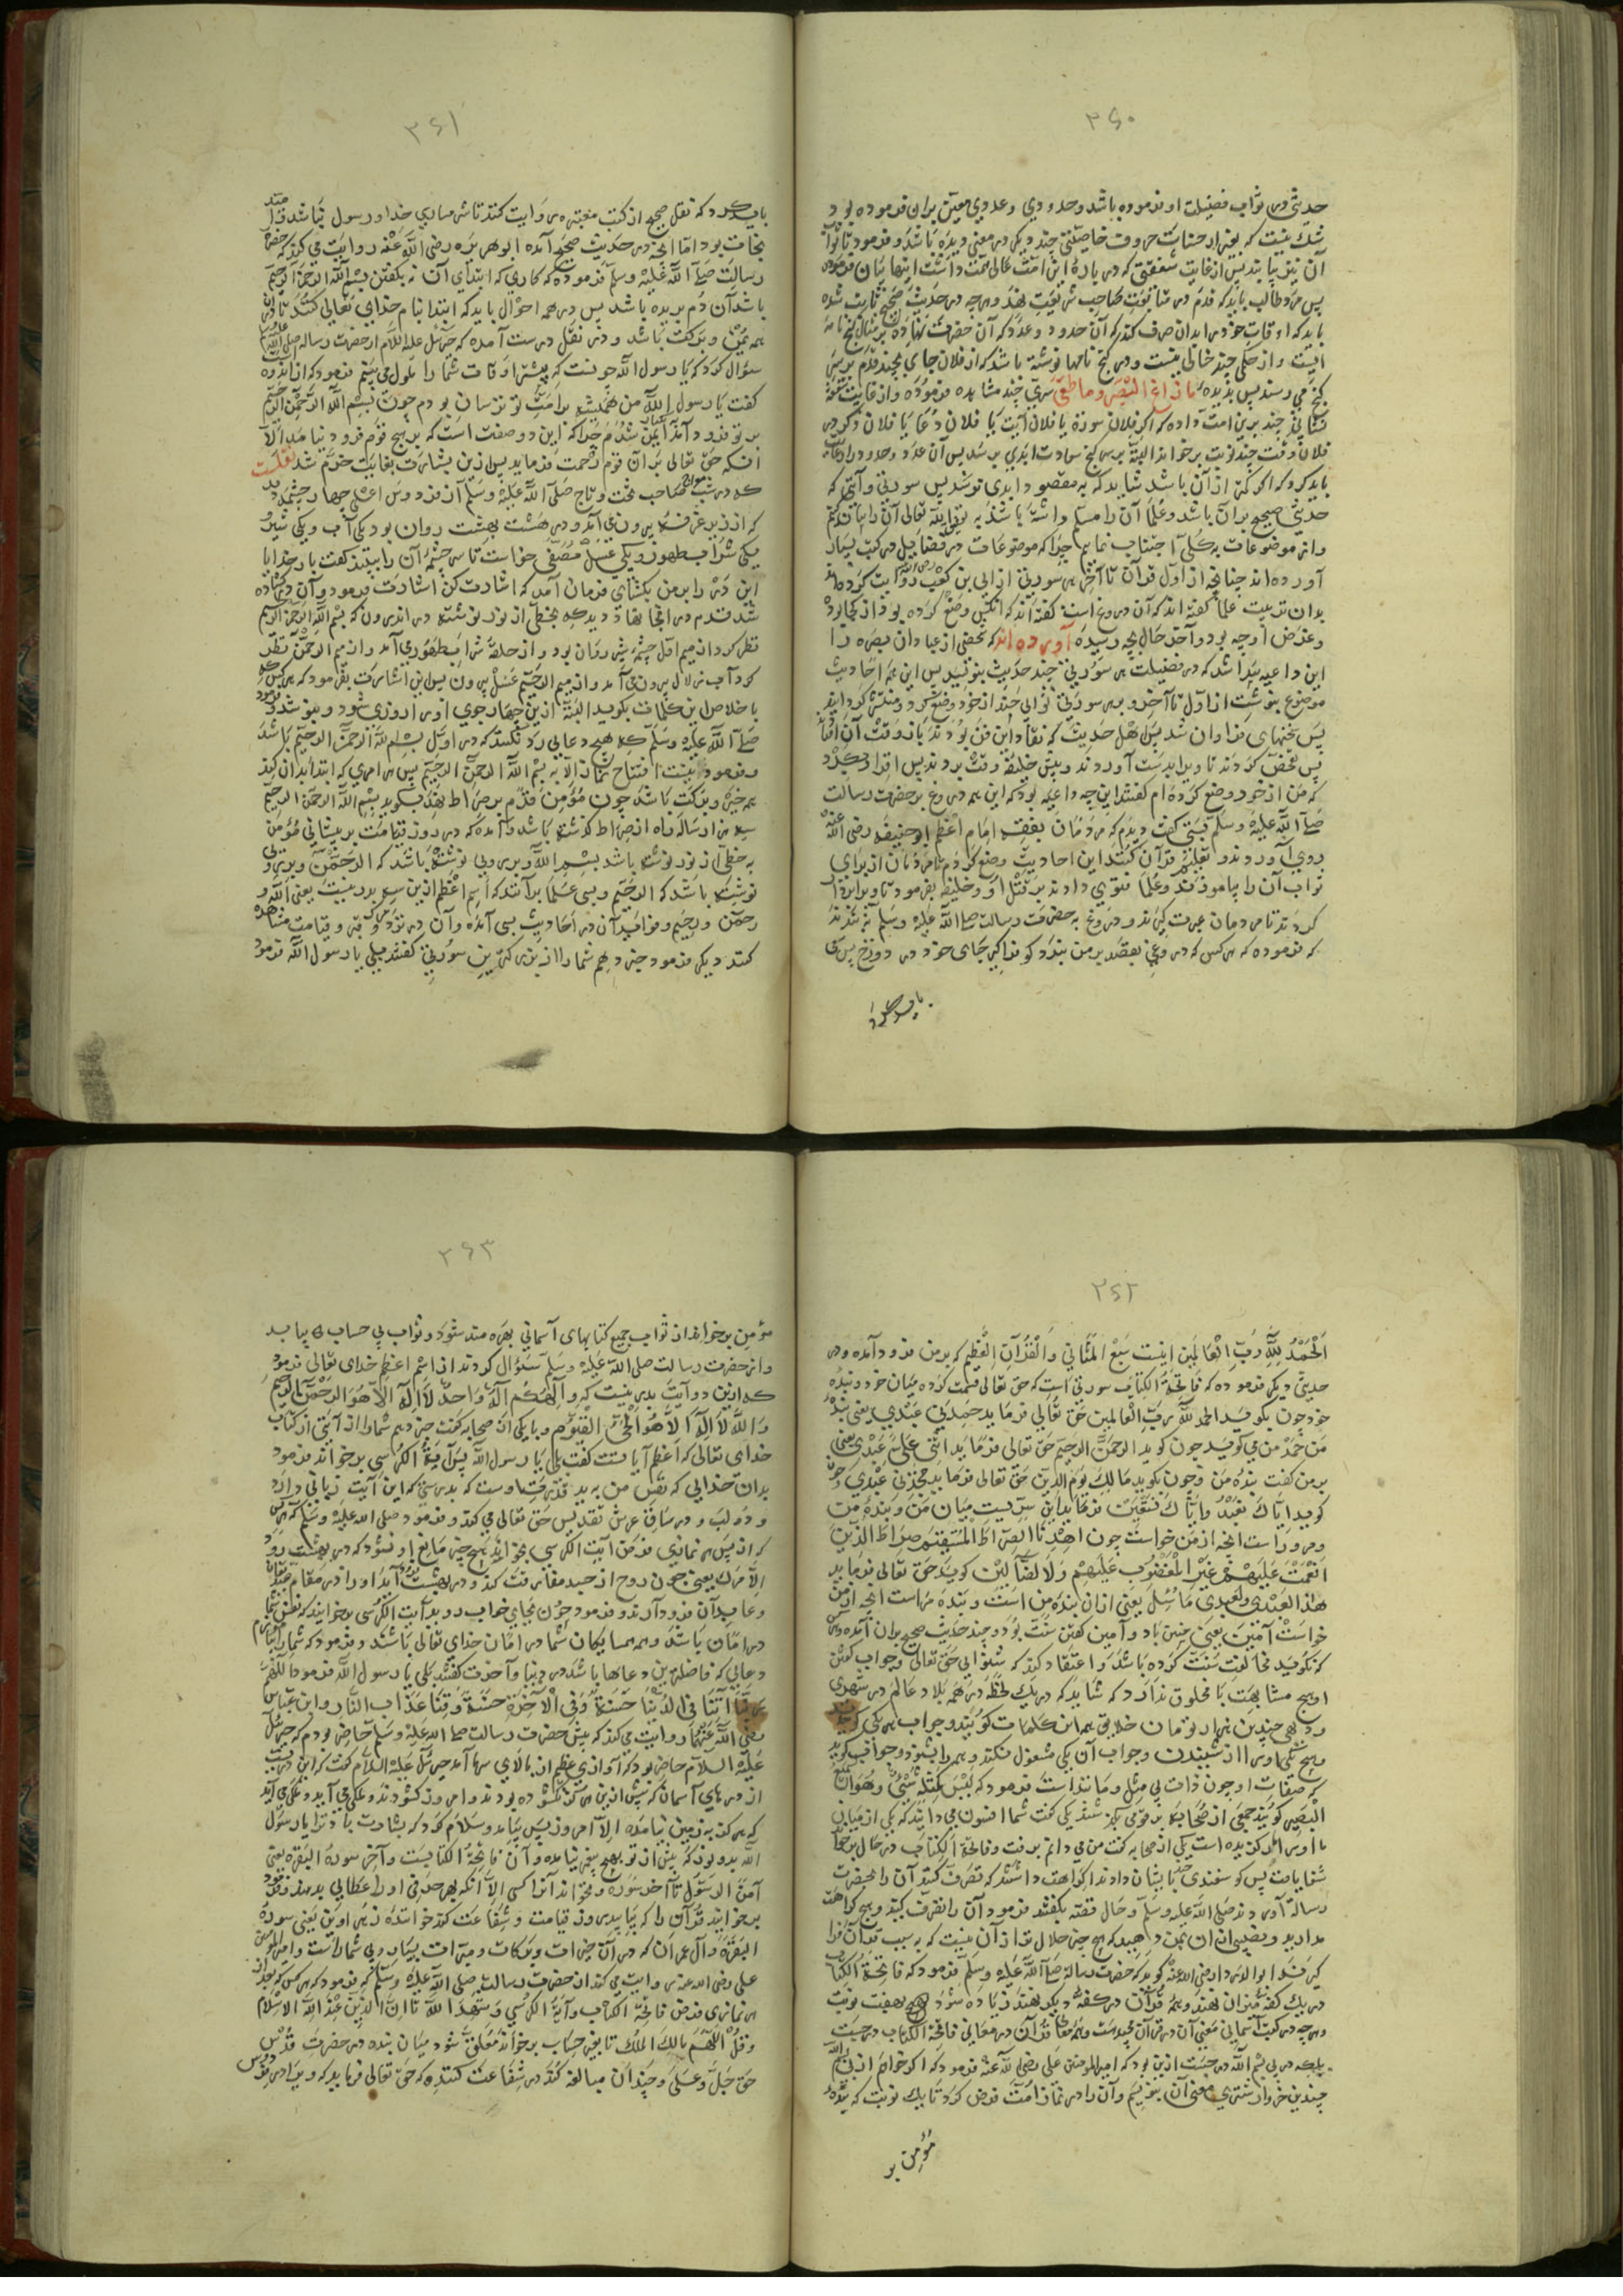 ۳۶۰
حدیثی در ثواب فضیلت او فرموده باشد و حدودی و عددی معین بران فرموده بود
پس مرد طالب باید که قدم در متابعت صاحب شریعت نهد و هرچه در حدیث صحیح ثابت شده
باید که اوقات خود در ان صرف کند که آن حدود و عدد که آن حضرت نهاده بر مثال گنج نامه
ایست و از حکمی چند خالی نیست و در گنج نامها نوشته باشد که از فلان جای بچند قدم بر سر
گنج می رسند پس بدیده ما زاغ البصر و ما طغی سری چند مشاهده فرموده و از غایت شفقت
فلان وقت چند نوبت برخواند البته بر سر گنج سعادت ابدی برسد پس آن عدد و حدود را رعایت
باید کرد که اگر کمتر از آن باشد شاید که به مقصود ابدی نرسد پس سورتی و آیتی که
حدیثی صحیح بر آن باشد و علما آن را مسلم داشته باشند به توفیق الله تعالی آن را بیان کنم
و از موضوعات به کلی اجتناب نمایم چرا که موضوعات در فضایل در کتب بسیار
آورده اند چنانچه از اول قرآن تا آخر هر سورتی از ابی بن کعب رضی الله روایت کرده اند
بدان ترتیب علما گفته اند که آن دروغ است گفته اند که آنکس وضع کرده بود از کجا بود
و غرض او چه بود و آخر حال بچه رسید آورده اند که شخصی از عبادان بصره را
این داعیه پیدا شد که در فضیلت هر سورتی چند حدیث بنویسد پس این همه احادیث
موضوع بنوشت از اول تا آخر و بر هر سورتی ثوابی چند از خود وضع کرد و منتشر گردانید
پس تفحص کردند تا ویرا بدست آوردند و پیش خلیفه وقت بردند پس اقرار کرد
که من از خود وضع کرده ام گفتند این چه داعیه بود که این همه دروغ بر حضرت رسالت
صلی الله علیه و سلم بستی گفت دیدم که مردمان بفقه امام اعظم ابو حنیفه رضی الله عنه
روی آوردند و تعلیم قرآن کمتر این احادیث وضع کردم تا مردمان از برای
ثواب آن را بیاموزند و علما فتوی دادند بر قتل او و خلیفه بفرمود تا ویرا بردار
کردند تا مردمان عبرت گیرند و دروغ به حضرت رسالت صلی الله علیه و سلم نه بندند
که فرموده که هر کس که دروغی بقصد بر من بندد گو فراگیر جای خود در دوزخ پس سعی
باید کرد
۳۶۱
باید کرد که نقل صحیح از کتب معتبره روایت کند تا شرمساری خدا و رسول نباشد و امید
نجات بود اما آنچه در حدیث صحیح آمده ابو هریره رضی الله عنه روایت می کند که حضرت
رسالت صلی الله علیه و سلم فرموده که کاری که ابتدای آن نه بگفتن بسم الله الرحمن الرحیم
باشد آن دم بریده باشد پس در همه احوال باید که ابتدا بنام خدای تعالی کنند تا در آن
همه یمن و برکت باشد و در نقل درست آمده که جبرئیل علیه السلام از حضرت رسالت صلی الله علیه
سؤال کرد که یا رسول الله چونست که پیشتر اوقات شما را ملول می بینم فرمود که از اندوه امت
گفت یا رسول الله من همیشه بر امت تو ترسان بودم چون بسم الله الرحمن الرحیم
بر تو فرود آمد ایمن شدم چرا که این دو صفت است که بر هیچ قوم فرود نیامد الا
انکه حق تعالی بر آن قوم رحمت فرماید پس ازین بشارت بغایت خرم شد نقلست
که در شب معراج صاحب تخت و تاج صلی الله علیه و سلم از فردوس اعلی چهار چشمه دید
که از زیر عرش بیرون می آمد و در هشت بهشت روان بود یکی آب و یکی شیر
یکی شراب طهور و یکی عسل مصفی خواست تا سر چشمه آن را ببیند گفت بار خدایا
این در را بر من بگشای فرمان آمد که اشارت کن اشارت فرمود و آن در گشاده
شد قدم در آنجا نهاد و دید که بخطی از نور نوشته در اندرون که بسم الله الرحمن الرحیم
نظر کرد از میم اول چشمه شیر روان بود و از حلقه شراب طهور می آمد و از میم الرحمن نظر
کرد آب زلال بیرون می آمد و از میم الرحیم عسل بیرون پس این اشارت بفرمود که هر کس که
با خلاص این کلمات بگوید البته ازین چهار جوی او را روزی شود و بنوشد و فرمود
صلی الله علیه و سلم که هیچ دعایی رد نگردد که در اول بسم الله الرحمن الرحیم باشد
و فرمود نیست افتتاح نماز الا به بسم الله الرحمن الرحیم پس هر امری که ابتدا بدان کنند
همه خیر و برکت باشد چون مؤمن قدم بر صراط نهد بگوید بسم الله الرحمن الرحیم
سه هزار ساله راه از صراط گذشته باشد و آمده که در روز قیامت بر پیشانی مؤمن
به خطی از نور نوشته باشد بسم الله و بر روی نوشته باشد که الرحمن و بر بینی
نوشته باشد که الرحیم و بسی علما برآنند که اسم اعظم ازین سه بدر نیست یعنی الله و
رحمن و رحیم و فواید آن در احادیث بسی آمده و آن در نزد مرگ و قبر و قیامت مشاهده
کنند دیگر فرمود خبر دهم شما را از بزرگترین سورتی گفتند بلی یا رسول الله فرمود
۳۶۲
الحمد لله رب العالمین اینست سبع المثانی و القرآن العظیم که بر من فرود آمده و در
حدیثی دیگر فرموده که فاتحة الکتاب سورتی است که حق تعالی قسمت کرده میان خود و بنده
خود چون بگوید الحمد لله رب العالمین حق تعالی فرماید حمدنی عبدی یعنی بنده
من حمد من می گوید چون گوید الرحمن الرحیم حق تعالی فرماید اثنی علی عبدی یعنی
بر من گفت بنده من و چون بگوید مالک یوم الدین حق تعالی فرماید مجدنی عبدی و چون
گوید ایاک نعبد و ایاک نستعین فرماید این سریست میان من و بنده من
و مر وراست انچه از من خواست چون اهدنا الصراط المستقیم صراط الذین
انعمت علیهم غیر المغضوب علیهم و لا الضالین گوید حق تعالی فرماید
هذا لعبدی و لعبدی ما سئل یعنی از ان بنده من است و بنده مراست انچه از من
خواست آمین یعنی چنین باد و آمین گفتن سنت بود و چند حدیث صحیح بران آمده و هر کس
که نگوید مخالفت سنت کرده باشد و اعتقاد کند که شنوایی حق تعالی و جواب گفتن
او هیچ مشابهت با مخلوق ندارد که شاید که در یک لحظه در همه بلاد عالم در شهری
و دهی چندین هزار نوبت خلایق همه این کلمات گویند و جواب هر یکی گوید
که صفات او چون ذات بی مثل و مانند است فرمود که لیس کمثله شئ و هو السمیع
البصیر گویند جمعی از صحابه بر قومی بگذشتند یکی گفت شما افسون می دانید که یکی از میان
ما را مار گزیده است یکی از صحابه گفت من می دانم برفت و فاتحة الکتاب در حال برخواند
شفا یافت پس گوسفندی چند بایشان دادند اکراهت داشتند که تصرف کنند آن را بحضرت
رسالة آوردند صلی الله علیه و سلم و حال قصه بگفتند فرمود آن را تصرف کنید و هیچ کراهت
گیرند ابوالدرداء رضی الله عنه گوید که حضرت رسالة صلی الله علیه و سلم فرمود که فاتحة الکتاب
در یک کفه میزان نهند و همه قرآن در کفه دیگر نهند زیاده شود بهفت نوبت
و هرچه در کتب آسمانی معنی آن در قرآن مجید است و همه معانی قرآن در معانی فاتحة الکتاب درجست
بلکه در بی بسم الله درجست ازین بود که امیر المؤمنین علی رضی الله عنه فرمود که اگر خواهم از بی بسم الله
چندین خروار شتری معنی آن بنویسم و آن را در نماز امت فرض کرد تا بیک نوبت که بنده
مؤمن بر
۳۶۳
مؤمن برخواند از ثواب جمیع کتابهای آسمانی بهره مند شود و ثواب بی حساب بیابد
و از حضرت رسالت صلی الله علیه و سلم سؤال کردند از اسم اعظم خدای تعالی فرمود
که ازین دو آیت بدر نیست که و الهکم اله واحد لا اله الا هو الرحمن الرحیم
و الله لا اله الا هو الحی القیوم و با یکی از صحابه گفت خبر دهم شما را از آیتی از کتاب
خدای تعالی که اعظم آیاتست گفت بلی یا رسول الله پس آیة الکرسی برخواند فرمود
بدان خدایی که نفس من به ید قدرت اوست که بدرستی که این آیت زبانی دارد
و دو لب و در ساق عرش تقدیس حق تعالی می کند و فرمود صلی الله علیه و سلم که هر کس
که از پس هر نمازی فرض آیت الکرسی بخواند هیچ چیز مانع او نشود که در بهشت رود
الا مرگ یعنی چون روح از جسد مفارقت کند و در بهشت برند او را در مقام
و عابدان فرود آرند و فرمود چون بجای خواب روید آیت الکرسی برخوانید که نفس شما
در امان باشد و همه همسایگان شما در امان خدای تعالی باشند و فرمود که شما را بیاموزم
دعایی که فاضلترین دعاها باشد در دنیا و آخرت گفتند بلی یا رسول الله فرمود اللهم
ربنا آتنا فی الدنیا حسنة و فی الآخرة حسنة و قنا عذاب النار و ابن عباس
رضی الله عنهما روایت می کند که پیش حضرت رسالت صلی الله علیه و سلم حاضر بودم که جبرئیل
علیه السلام حاضر بود که آوازی عظیم از بالای سر ما آمد جبرئیل علیه السلام گفت که این دریست
از درهای آسمان که پیش ازین هرگز نگشوده بودند و امروز گشودند و ملکی می آید و ملکی می آید
که هرگز به زمین نیامده الا امروز پس بیامد و سلام کرد که بشارت باد ترا یا رسول
الله بدو نور که پیش از تو بهیچ پیغمبر نیامده و آن فاتحة الکتابست و آخر سورة البقره یعنی
آمن الرسول تا آخر سوره و نخواند آنرا کسی الا آنکه بهر حرفی او را عطایی بدهند و فرمود
برخوانید قرآن را که بیاید روز قیامت و شفاعت کند خواننده زهراوین یعنی سوره
البقره و آل عمران که در آن خیرات و برکات و میراث بسیار برای شماراست و امیر المؤمنین
علی رضی الله عنه روایت می کند از حضرت رسالت صلی الله علیه و سلم که فرمود که هر کس که بعد از
هر نمازی فرض فاتحة الکتاب و آیة الکرسی و شهد الله تا ان الدین عند الله الاسلام
و قل اللهم مالک الملک تا بغیر حساب برخواند معلق شود میان بنده در حضرت قدس
حق جل و علی و چندان مبالغه کند در شفاعت کننده که حق تعالی فرماید که ویرا در فردوس